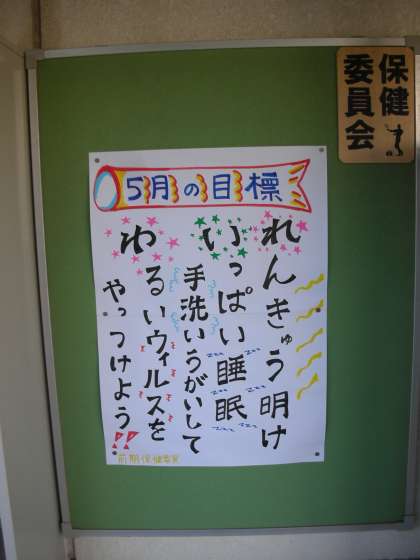 保健
委員会
5月の目標
れんきゅう明け
いっぱい睡眠
手洗いうがいして
わるいウィルスを
やっつけよう!!
前期保健委員